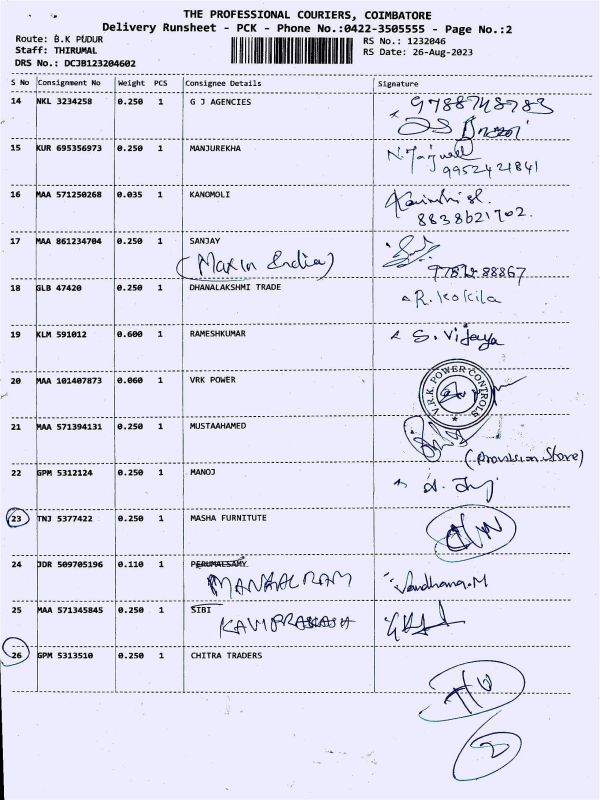 THE PROFESSIONAL COURIERS, COIMBATORE
Delivery Runsheet - PCK - Phone No.:0422-3505555 - Page No.:2
Route: B.K PUDUR
RS No.: 1232046
Staff: THIRUMAL
RS Date: 26-Aug-2023
DRS No.: DCJB123204602
S No Consignment No Weight PCS Consignee Details Signature
14 NKL 3234258 0.250 1 G J AGENCIES
9788748783
15 KUR 695356973 0.250 1 MANJUREKHA
9952421841
16 MAA 571250268 0.035 1 KANOMOLI
8838621702.
17 MAA 861234704 0.250 1 SANJAY
18 GLB 47420 0.250 1 DHANALAKSHMI TRADE
R. Kokila
19 KLM 591012 0.600 1 RAMESHKUMAR
S. Vijaya
20 MAA 101407873 0.060 1 VRK POWER
V.R.K. POWER CONTROLS
21 MAA 571394131 0.250 1 MUSTAAHAMED
(Provision Store)
22 GPM 5312124 0.250 1 MANOJ
23 TNJ 5377422 0.250 1 MASHA FURNITUTE
24 JDR 509705196 0.110 1 PERUMALSAMY
Vandhana.M
25 MAA 571345845 0.250 1 SIBI
KAVIPRAKASH
26 GPM 5313510 0.250 1 CHITRA TRADERS